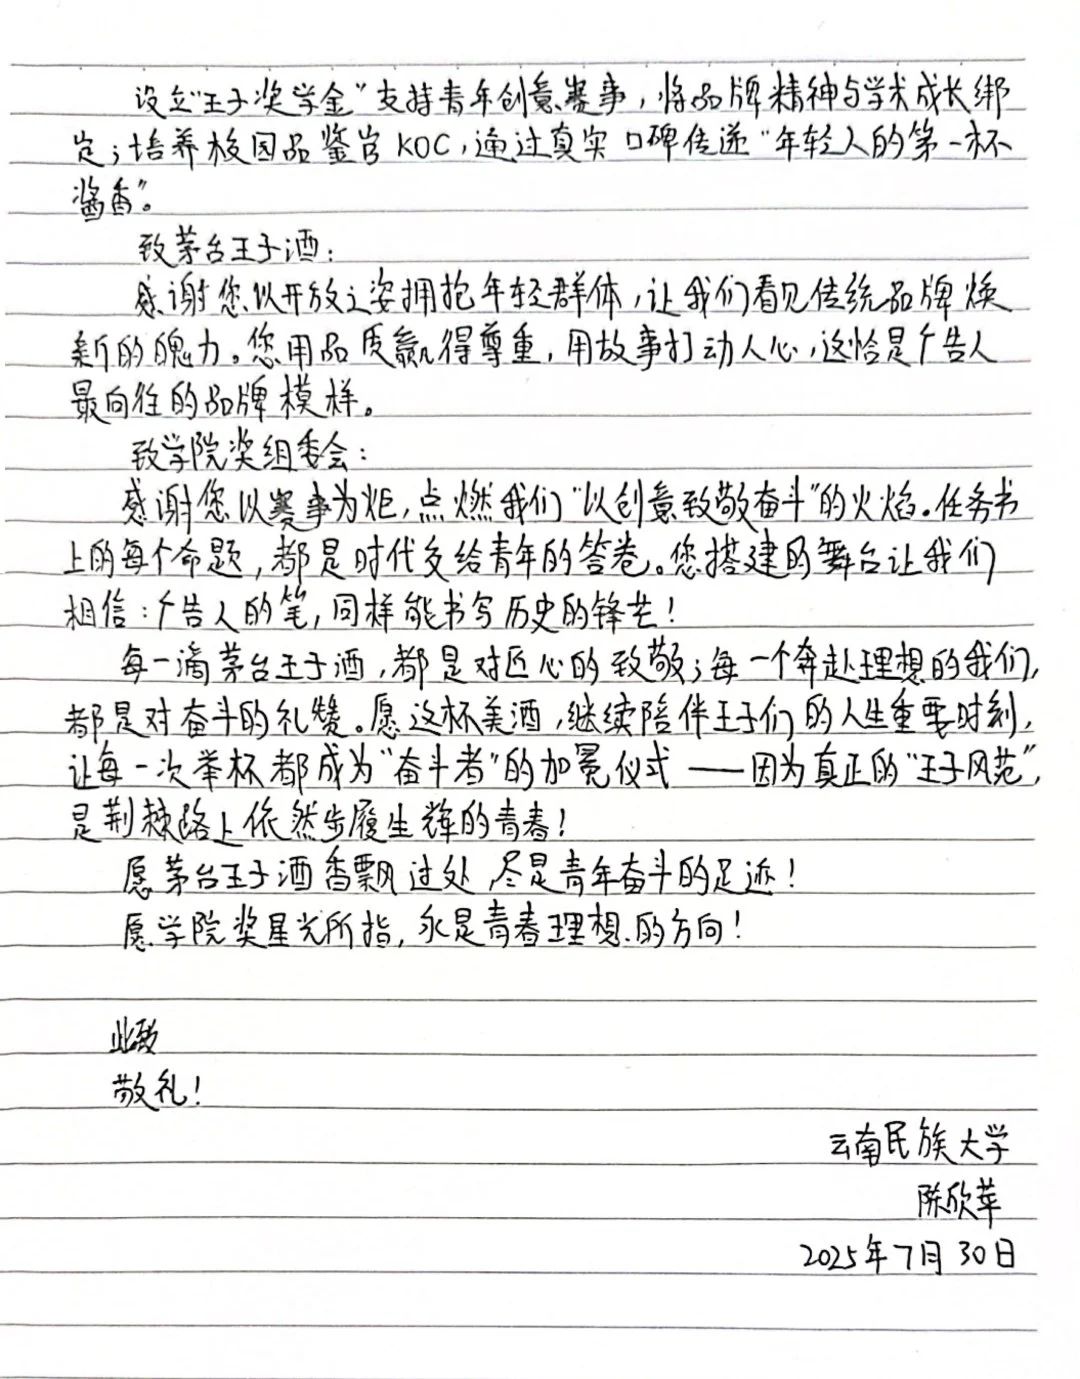 设立“王子奖学金”支持青年创意赛事，将品牌精神与学术成长绑
定；培养校园品鉴官KOC，通过真实口碑传递“年轻人的第一杯
酱香”。
致茅台王子酒：
感谢您以开放之姿拥抱年轻群体，让我们看见传统品牌焕
新的魄力。您用品质赢得尊重，用故事打动人心，这恰是广告人
最向往的品牌模样。
致学院奖组委会：
感谢您以赛事为炬，点燃我们“以创意致敬奋斗”的火焰。任务书
上的每个命题，都是时代交给青年的答卷。您搭建的舞台让我们
相信：广告人的笔，同样能书写历史的锋芒！
每一滴茅台王子酒，都是对匠心的致敬；每一个奔赴理想的我们，
都是对奋斗的礼赞。愿这杯美酒，继续陪伴王子们的人生重要时刻，
让每一次举杯都成为“奋斗者”的加冕仪式——因为真正的“王子风范”，
是荆棘路上依然步履生辉的青春！
愿茅台王子酒香飘过处，尽是青年奋斗的足迹！
愿学院奖星光所指，永是青春理想的方向！
此致
敬礼！
云南民族大学
陈欣苹
2025年7月30日